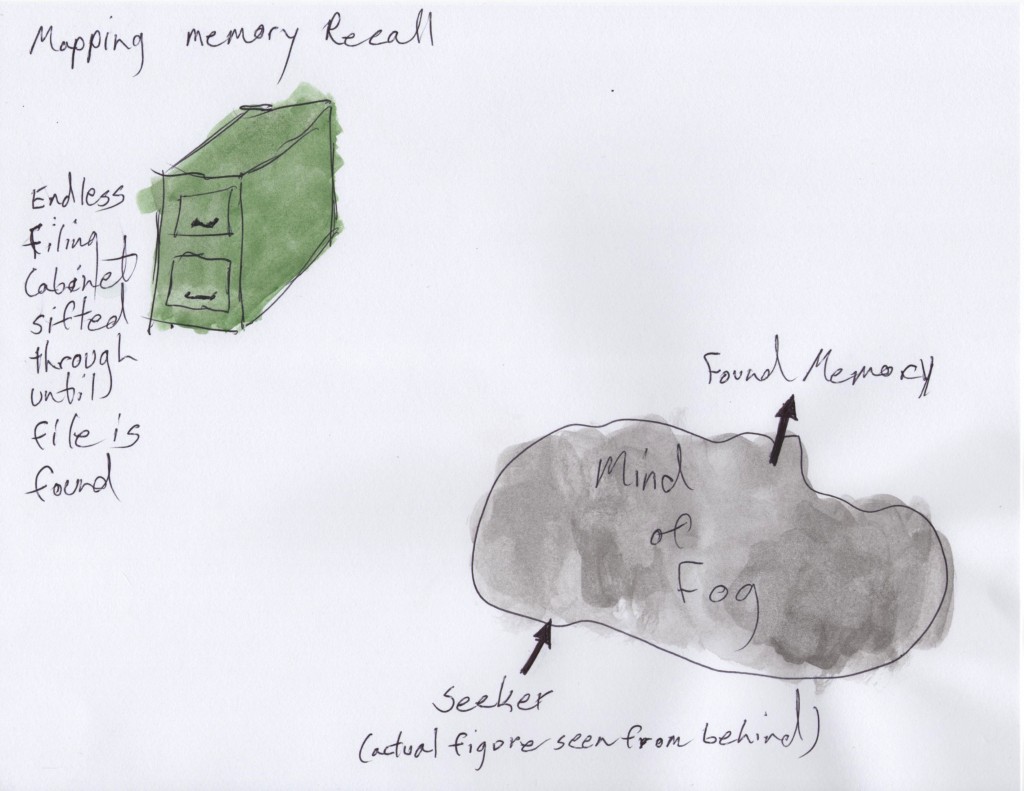 Mapping memory Recall
Endless
Filing
Cabinet
sifted
through
until
file is
found
Found Memory
Mind
of
Fog
Seeker
(actual figure seen from behind)